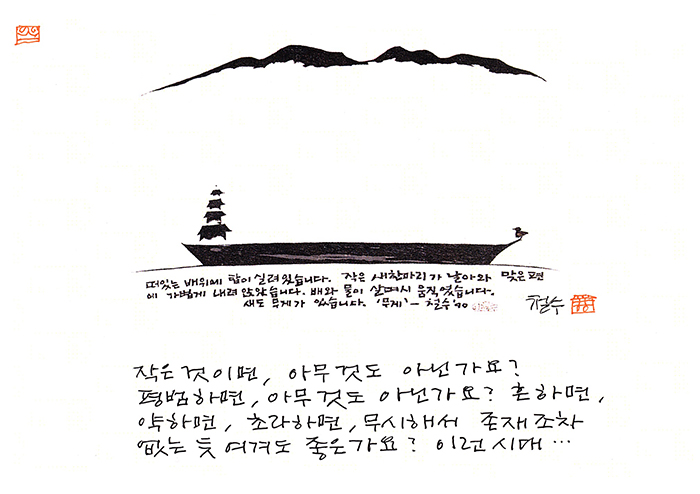 떠있는 배위에 탑이 실려있습니다. 작은 새한마리가 날아와 맞은편
에 가볍게 내려 앉았습니다. 배와 물이 살며시 움직였습니다.
새도 무게가 있습니다. '무게' - 철수 '90
철수
작은 것이면, 아무것도 아닌가요?
평범하면, 아무것도 아닌가요? 흔하면,
약하면, 초라하면, 무시해서 존재조차
없는 듯 여겨도 좋은가요? 이런 시대…